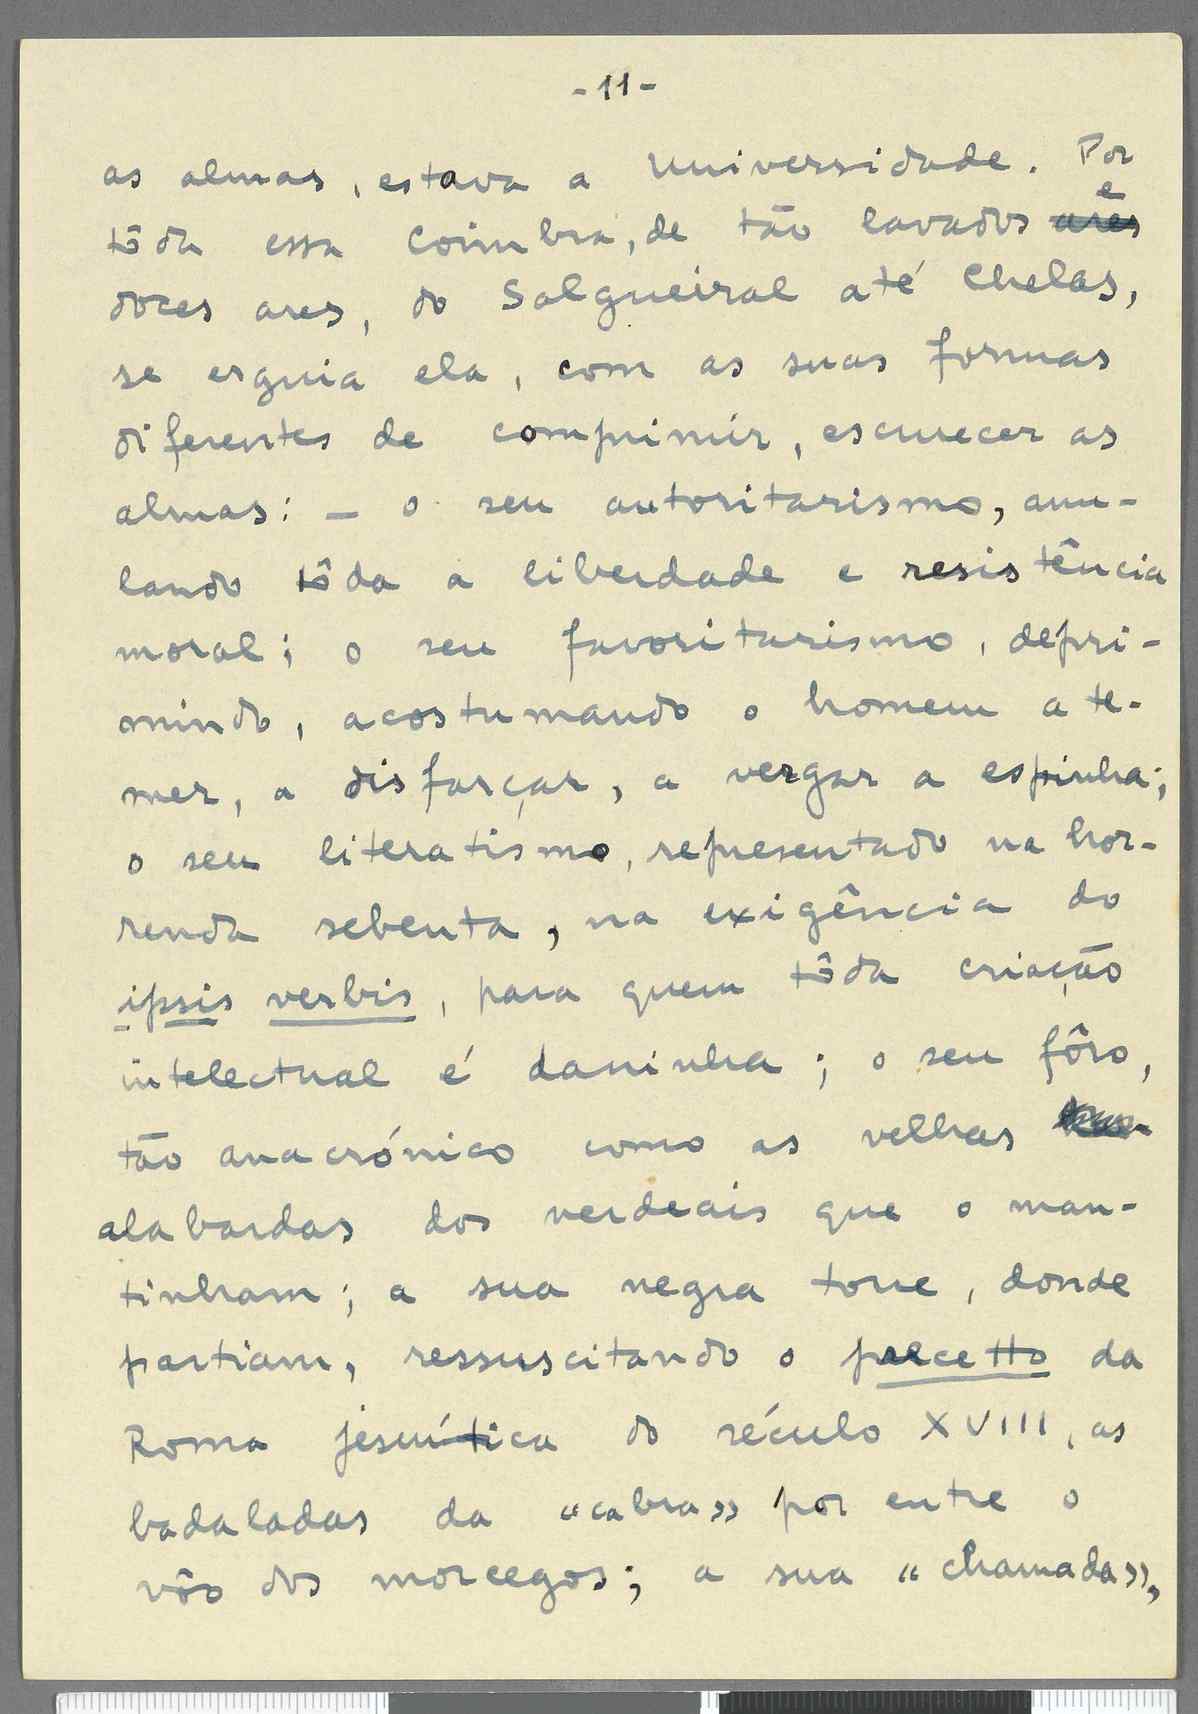 -11-
as almas, estava a Universidade. Por
tôda essa Coimbra, de tão lavados ares e
doces ares, do Salgueiral até Chelas,
se erguia ela, com as suas formas
diferentes de comprimir, escurecer as
almas: — o seu autoritarismo, anu-
lando tôda a liberdade e resistência
moral; o seu favoritarismo, depri-
mindo, acostumando o homem a te-
mer, a disfarçar, a vergar a espinha;
o seu literatismo, representado na hor-
renda sebenta, na exigência do
ipsis verbis, para quem tôda criação
intelectual é daninha; o seu fôro,
tão anacrónico como as velhas
alabardas dos verdeais que o man-
tinham; a sua negra torre, donde
partiam, ressuscitando o precetto da
Roma jesuítica do século XVIII, as
badaladas da "cabra» por entre o
vôo dos morcegos; a sua "chamada»,